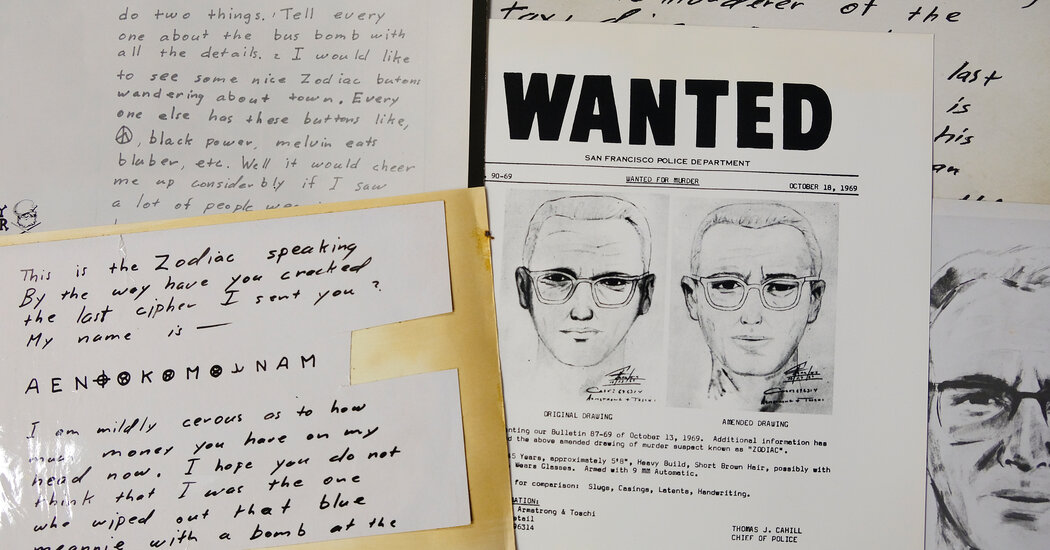 do two things. Tell every
one about the bus bomb with
all the details. 2 I would like
to see some nice Zodiac butons
wandering about town. Every
one else has these buttons like,
, black power, melvin eats
bluber, etc. Well it would cheer
me up considerbly if I saw
a lot of people
This is the Zodiac speaking
By the way have you cracked
the last cipher I sent you ?
My name is —
A E N ⊕ ⊗ K ⊗ M ⊗ ⅃ N A M
I am mildly cerous as to how
much money you have on my
head now. I hope you do not
think that I was the one
who wiped out that blue
meannie with a bomb at the
murderer of the
last
is
his
WANTED
SAN FRANCISCO POLICE DEPARTMENT
90-69 WANTED FOR MURDER OCTOBER 18, 1969
ORIGINAL DRAWING AMENDED DRAWING
nting our Bulletin 87-69 of October 13, 1969. Additional information has
d the above amended drawing of murder suspect known as "ZODIAC".
5 Years, approximately 5'8", Heavy Build, Short Brown Hair, possibly with
Wears Glasses. Armed with 9 MM Automatic.
for comparison: Slugs, Casings, Latents, Handwriting.
ATION:
Armstrong & Toschi
etail
96314
THOMAS J. CAHILL
CHIEF OF POLICE